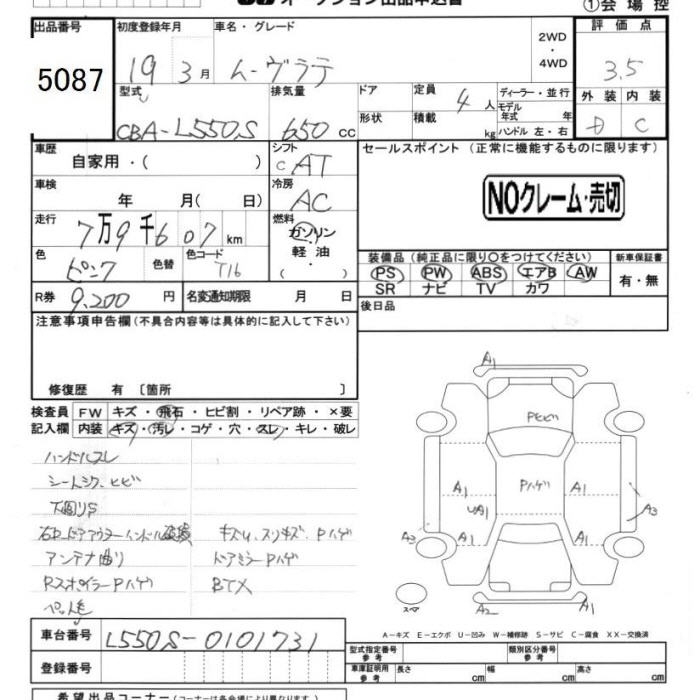 オークション出品申込書
①会場控
出品番号 初度登録年月 車名・グレード 2WD・4WD 評価点
5087 19 3月 ムーヴラテ 3.5
型式 排気量 ドア 定員 4人 ディーラー・並行 外装 内装
CBA-L550S 650cc 形状 積載 kg モデル年式 年 ハンドル 左・右 D C
車歴 自家用・( ) シフト C AT セールスポイント (正常に機能するものに限ります)
車検 年 月( 日) 冷房 AC
NOクレーム・売切
走行 7万9千607km 燃料 ガソリン・軽油・
色 ピンク 色替 色コード T16
装備品 (純正品に限り〇をつけてください) 新車保証書
PS PW ABS エアB AW 有・無
SR ナビ TV カワ
R券 9,200円 名変通知期限 月 日
後日品
注意事項申告欄 (不具合内容等は具体的に記入して下さい)
修復歴 有 〔箇所 〕
検査員 FW キズ・飛石・ヒビ割・リペア跡・×要
記入欄 内装 キズ・汚レ・コゲ・穴・スレ・キレ・破レ
ハンドルスレ
シートシワ、ヒビ
下廻りS
アウターハンドル破損 キズ小、スリキズ、Pハゲ
アンテナ曲り ドアミラーPハゲ
RスポイラーPハゲ BTX
ペット毛
A1
Pヒビ
Pハゲ
A1 A1
UA1 A1
A3 A3
A2 A1
スペア
A-キズ E-エクボ U-凹み W-補修跡 S-サビ C-腐食 XX-交換済
車台番号 L550S-0101731
登録番号
型式指定番号 参考 類別区分番号 参考
車庫証明用 参考 長さ cm 幅 cm 高さ cm
希望出品コーナー (コーナーは各会場により異なります)